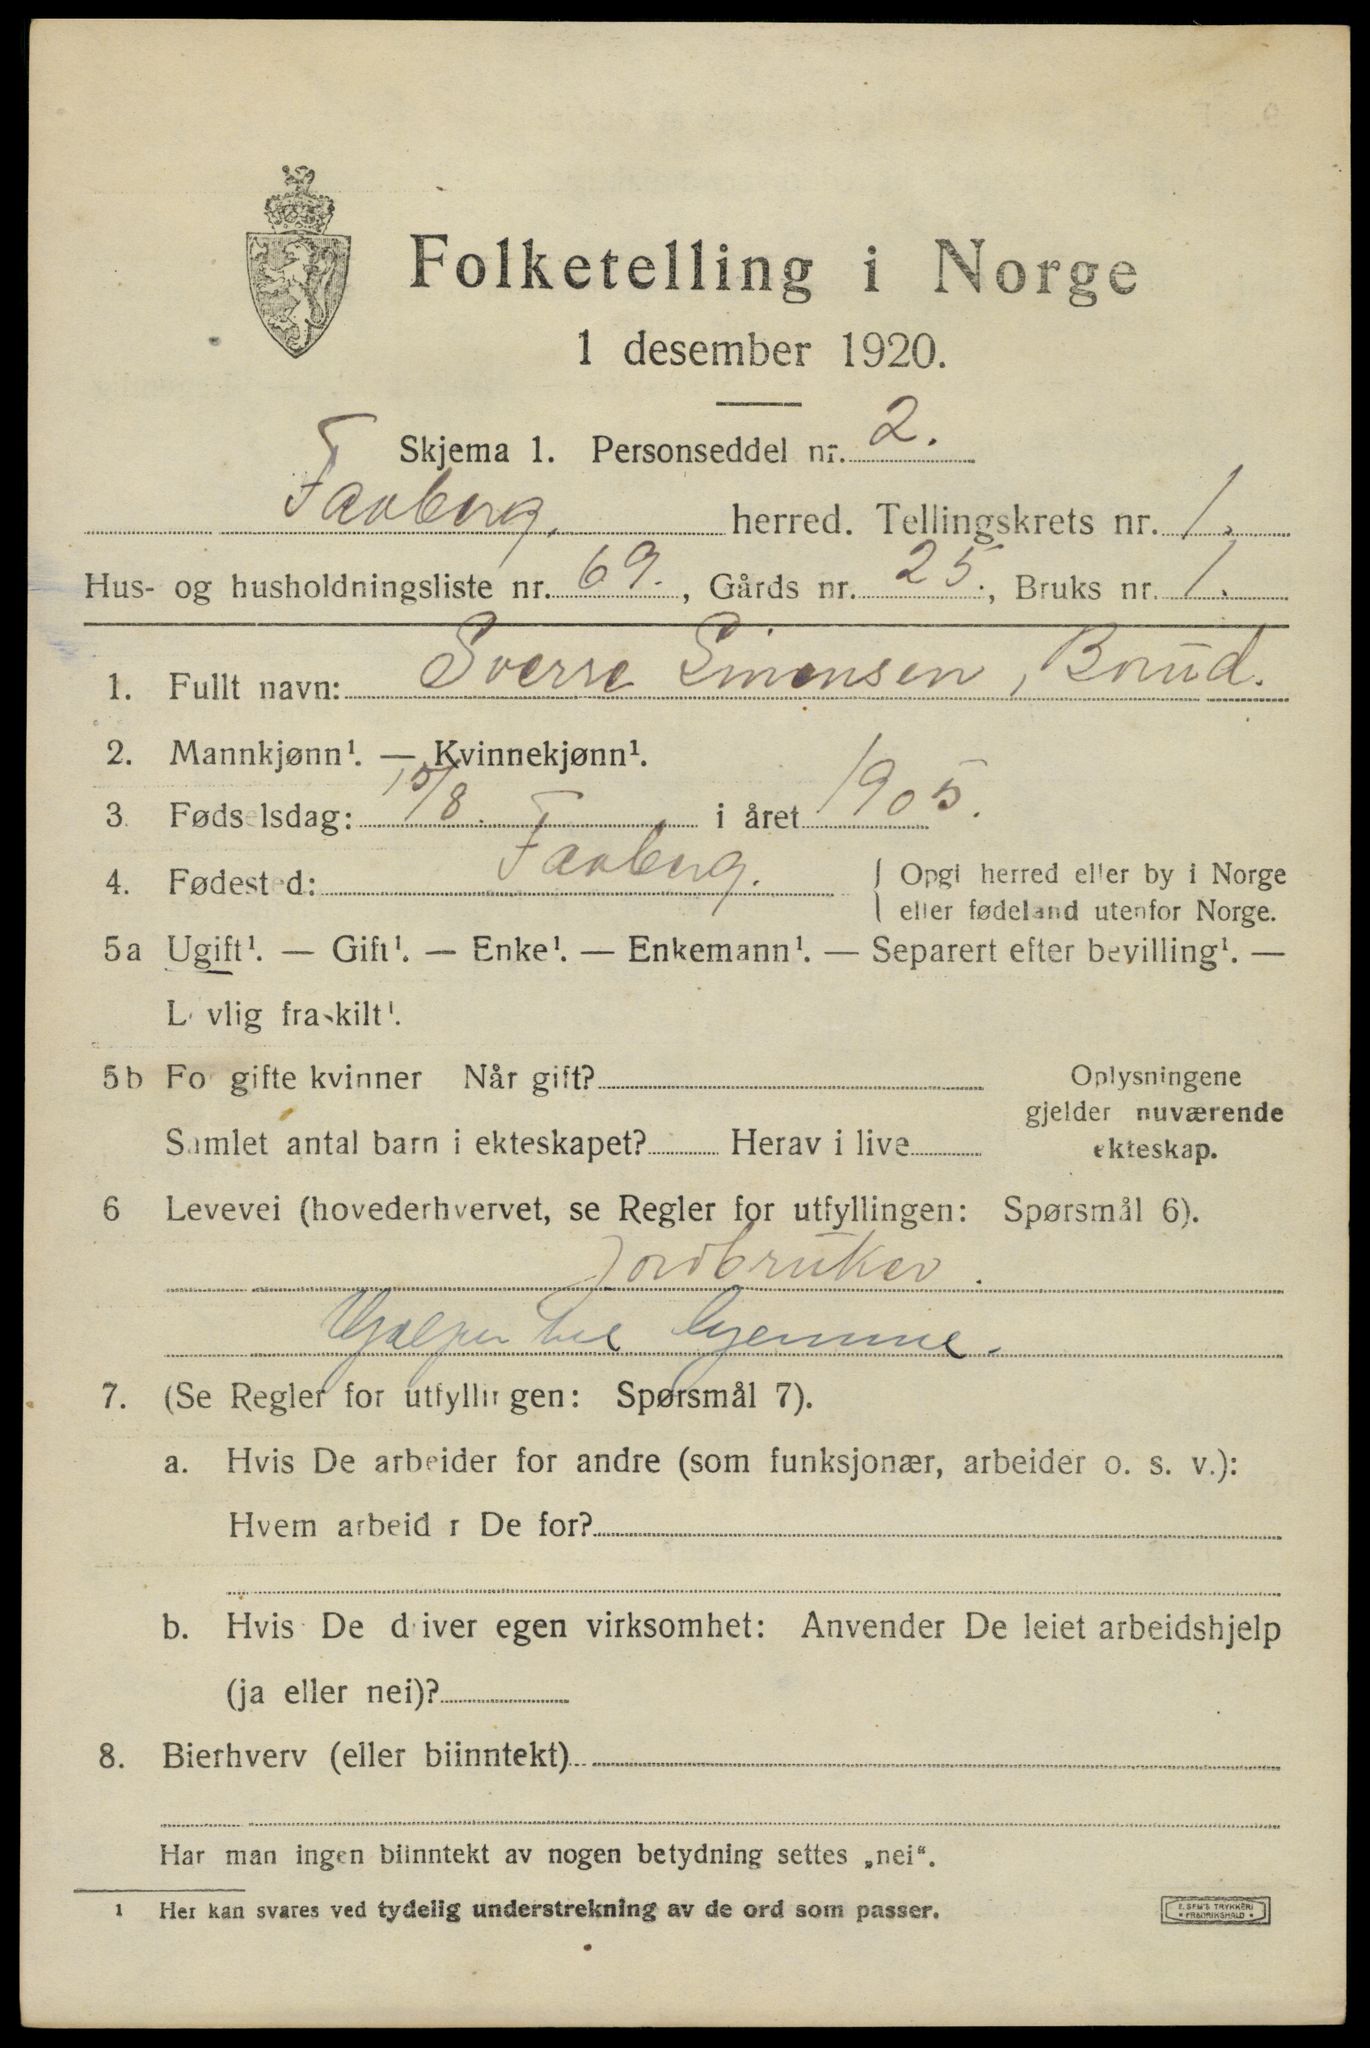 Folketelling i Norge
1 desember 1920.
Skjema 1. Personseddel nr. 2.
Faaberg. herred. Tellingskrets nr. 1.
Hus- og husholdningsliste nr. 69., Gårds nr. 25., Bruks nr. 1.
1. Fullt navn: Sverre Simensen, Borud.
2. Mannkjønn¹. — Kvinnekjønn¹.
3. Fødselsdag: 15/8. i året 1905.
4. Fødested: Faaberg. { Opgi herred eller by i Norge
eller fødeland utenfor Norge.
5a Ugift¹. — Gift¹. — Enke¹. — Enkemann¹. — Separert efter bevilling¹. —
Lovlig fraskilt¹.
5b For gifte kvinner Når gift?
Samlet antal barn i ekteskapet? Herav i live
Oplysningene
gjelder nuværende
ekteskap.
6 Levevei (hovederhvervet, se Regler for utfyllingen: Spørsmål 6).
Jordbruker.
Hjælper til hjemme.
7. (Se Regler for utfyllingen: Spørsmål 7).
a. Hvis De arbeider for andre (som funksjonær, arbeider o. s. v.):
Hvem arbeider De for?
b. Hvis De driver egen virksomhet: Anvender De leiet arbeidshjelp
(ja eller nei)?
8. Bierhverv (eller biinntekt)
Har man ingen biinntekt av nogen betydning settes „nei“.
1 Her kan svares ved tydelig understrekning av de ord som passer.
E. SEM'S TRYKKERI
* FREDRIKSHALD *